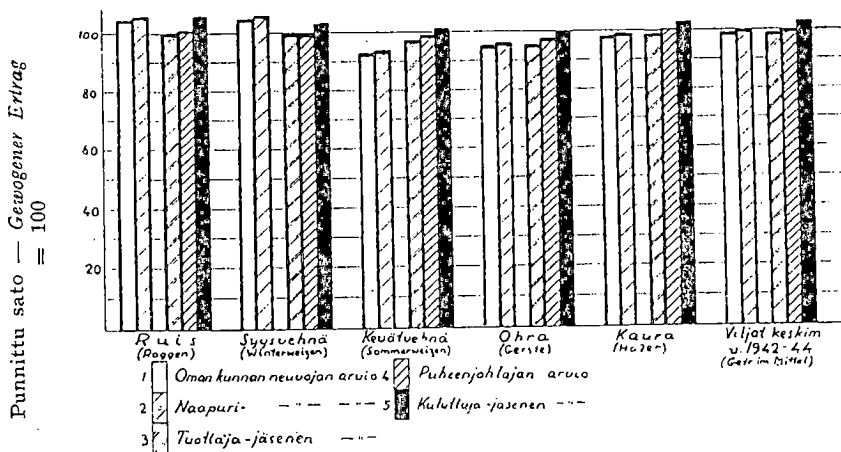 Punnittu sato — Gewogener Ertrag
= 100
100
80
60
40
20
Ruis
(Roggen)
Syysvehnä
(Winterweizen)
Kevätvehnä
(Sommerweizen)
Ohra
(Gerste)
Kaura
(Hafer)
Viljat keskim
v. 1942-44
(Getr im Mittel)
1 Oman kunnan neuvojan arvio
2 Naapuri- —"— —"—
3 Tuottaja-jäsenen —"—
4 Puheenjohtajan arvio
5 Kuluttaja-jäsenen —"—